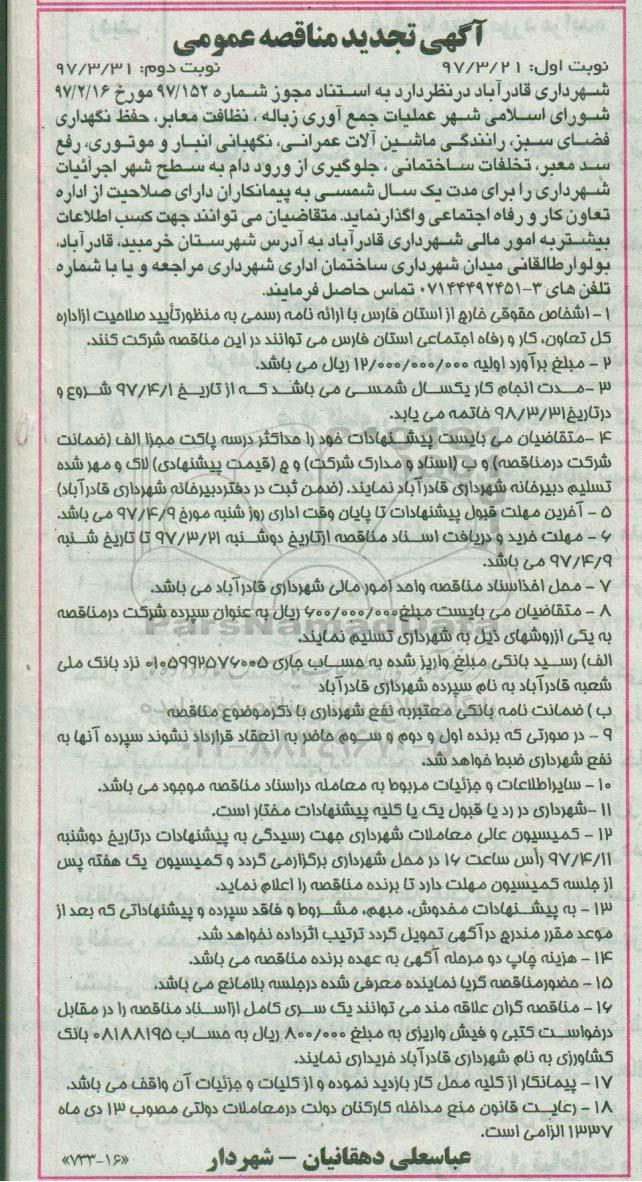 آگهی تجدید مناقصه عمومی
نوبت اول: ۹۷/۳/۲۱ نوبت دوم: ۹۷/۳/۳۱
شهرداری قادرآباد در نظر دارد به استناد مجوز شماره ۹۷/۱۵۲ مورخ ۹۷/۲/۱۶
شورای اسلامی شهر عملیات جمع آوری زباله ، نظافت معابر، حفظ نگهداری
فضای سبز، رانندگی ماشین آلات عمرانی، نگهبانی انبار و موتوری، رفع
سد معبر، تخلفات ساختمانی ، جلوگیری از ورود دام به سطح شهر اجرائیات
شهرداری را برای مدت یک سال شمسی به پیمانکاران دارای صلاحیت از اداره
تعاون کار و رفاه اجتماعی واگذار نماید. متقاضیان می توانند جهت کسب اطلاعات
بیشتر به امور مالی شهرداری قادرآباد به آدرس شهرستان خرمبید، قادرآباد،
بولوار طالقانی میدان شهرداری ساختمان اداری شهرداری مراجعه و یا با شماره
تلفن های ۳-۰۷۱۴۴۴۹۲۴۵۱ تماس حاصل فرمایند.
۱- اشخاص حقوقی خارج از استان فارس با ارائه نامه رسمی به منظور تأیید صلاحیت از اداره
کل تعاون، کار و رفاه اجتماعی استان فارس می توانند در این مناقصه شرکت کنند.
۲ - مبلغ برآورد اولیه ۱۲/۰۰۰/۰۰۰/۰۰۰ ریال می باشد.
۳ -مدت انجام کار یکسال شمسی می باشد که از تاریخ ۹۷/۴/۱ شروع و
در تاریخ ۹۸/۳/۳۱ خاتمه می یابد.
۴ -متقاضیان می بایست پیشنهادات خود را حداکثر در سه پاکت مجزا الف (ضمانت
شرکت در مناقصه) و ب (اسناد و مدارک شرکت) و ج (قیمت پیشنهادی) لاک و مهر شده
تسلیم دبیرخانه شهرداری قادرآباد نمایند. (ضمن ثبت در دفتر دبیرخانه شهرداری قادرآباد)
۵ - آخرین مهلت قبول پیشنهادات تا پایان وقت اداری روز شنبه مورخ ۹۷/۴/۹ می باشد.
۶ - مهلت خرید و دریافت اسناد مناقصه از تاریخ دوشنبه ۹۷/۳/۲۱ تا تاریخ شنبه
۹۷/۴/۹ می باشد.
۷ - محل اخذ اسناد مناقصه واحد امور مالی شهرداری قادرآباد می باشد.
۸ - متقاضیان می بایست مبلغ ۶۰۰/۰۰۰/۰۰۰ ریال به عنوان سپرده شرکت در مناقصه
به یکی از روشهای ذیل به شهرداری تسلیم نمایند.
الف) رسید بانکی مبلغ واریز شده به حساب جاری ۰۱۰۵۹۹۲۵۷۶۰۰۵ نزد بانک ملی
شعبه قادرآباد به نام سپرده شهرداری قادرآباد
ب ) ضمانت نامه بانکی معتبر به نفع شهرداری با ذکر موضوع مناقصه
۹ - در صورتی که برنده اول و دوم و سوم حاضر به انعقاد قرارداد نشوند سپرده آنها به
نفع شهرداری ضبط خواهد شد.
۱۰ - سایر اطلاعات و جزئیات مربوط به معامله در اسناد مناقصه موجود می باشد.
۱۱ -شهرداری در رد یا قبول یک یا کلیه پیشنهادات مختار است.
۱۲ - کمیسیون عالی معاملات شهرداری جهت رسیدگی به پیشنهادات در تاریخ دوشنبه
۹۷/۴/۱۱ رأس ساعت ۱۶ در محل شهرداری برگزار می گردد و کمیسیون یک هفته پس
از جلسه کمیسیون مهلت دارد تا برنده مناقصه را اعلام نماید.
۱۳ - به پیشنهادات مخدوش، مبهم، مشروط و فاقد سپرده و پیشنهاداتی که بعد از
موعد مقرر مندرج در آگهی تحویل گردد ترتیب اثر داده نخواهد شد.
۱۴ - هزینه چاپ دو مرحله آگهی به عهده برنده مناقصه می باشد.
۱۵ - حضور مناقصه گر یا نماینده معرفی شده در جلسه بلامانع می باشد.
۱۶ - مناقصه گران علاقه مند می توانند یک سری کامل از اسناد مناقصه را در مقابل
درخواست کتبی و فیش واریزی به مبلغ ۸۰۰/۰۰۰ ریال به حساب ۰۸۱۸۸۱۹۵ بانک
کشاورزی به نام شهرداری قادرآباد خریداری نمایند.
۱۷ - پیمانکار از کلیه محل کار بازدید نموده و از کلیات و جزئیات آن واقف می باشد.
۱۸ - رعایت قانون منع مداخله کارکنان دولت در معاملات دولتی مصوب ۱۳ دی ماه
۱۳۳۷ الزامی است.
عباسعلی دهقانیان – شهردار
«۷۳۳-۱۶»
ParsNamadData